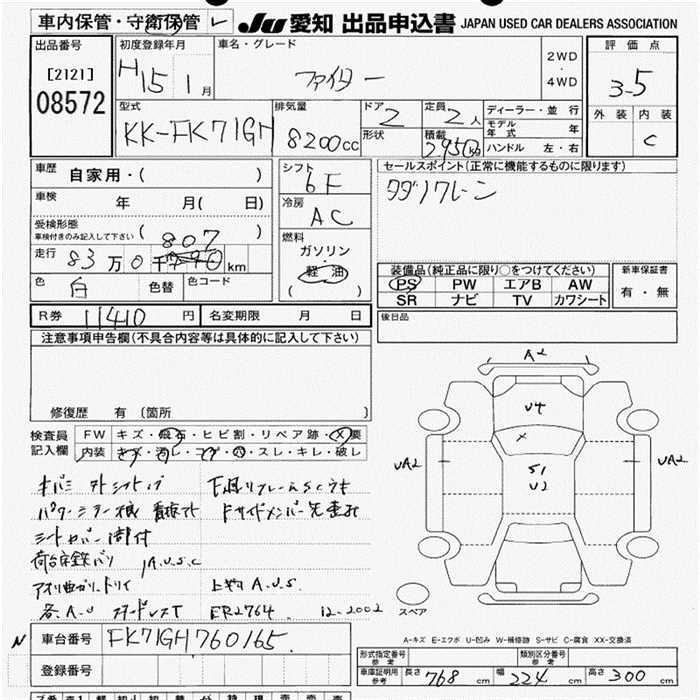 車内保管・守衛保管 レ JU 愛知 出品申込書 JAPAN USED CAR DEALERS ASSOCIATION
出品番号
[2121]
08572
初度登録年月
H15 1月
車名・グレード
ファイター
2WD
・
4WD
評価点
3-5
外装 内装
C
型式
KK-FK71GH
排気量
8200cc
ドア 2
形状
定員 2人
積載 2950kg
ディーラー・並行
モデル年式 年
ハンドル 左・右
車歴 自家用・( )
車検 年 月( 日)
受検形態
車検付きのみ記入して下さい ( )
807
走行 83万0千 km
色 白 色替 色コード
シフト
6F
冷房
AC
燃料
ガソリン
・
軽油
( )
セールスポイント(正常に機能するものに限ります)
タダノクレーン
装備品(純正品に限り○をつけてください)
PS PW エアB AW
SR ナビ TV カワシート
新車保証書
有・無
R券 11410円 名変期限 月 日
後日品
注意事項申告欄(不具合内容等は具体的に記入して下さい)
修復歴 有(箇所 )
検査員
記入欄
FW キズ・飛石・ヒビ割・リペア跡・X要
内装 キズ・汚レ・コゲ・穴・スレ・キレ・破レ
A2
U4
X
UA2
S1
U2
UA2
スペア
シートカバー
A.U.S.C
上物 A.U.S.
各A.U
ER2764
12-2002
A-キズ E-エクボ U-凹み W-補修跡 S-サビ C-腐食 XX-交換済
N 車台番号 FK71GH760165
登録番号
形式指定番号
参考
類別区分番号
参考
車庫証明用
参考
長さ 768cm 幅 224cm 高さ 300cm